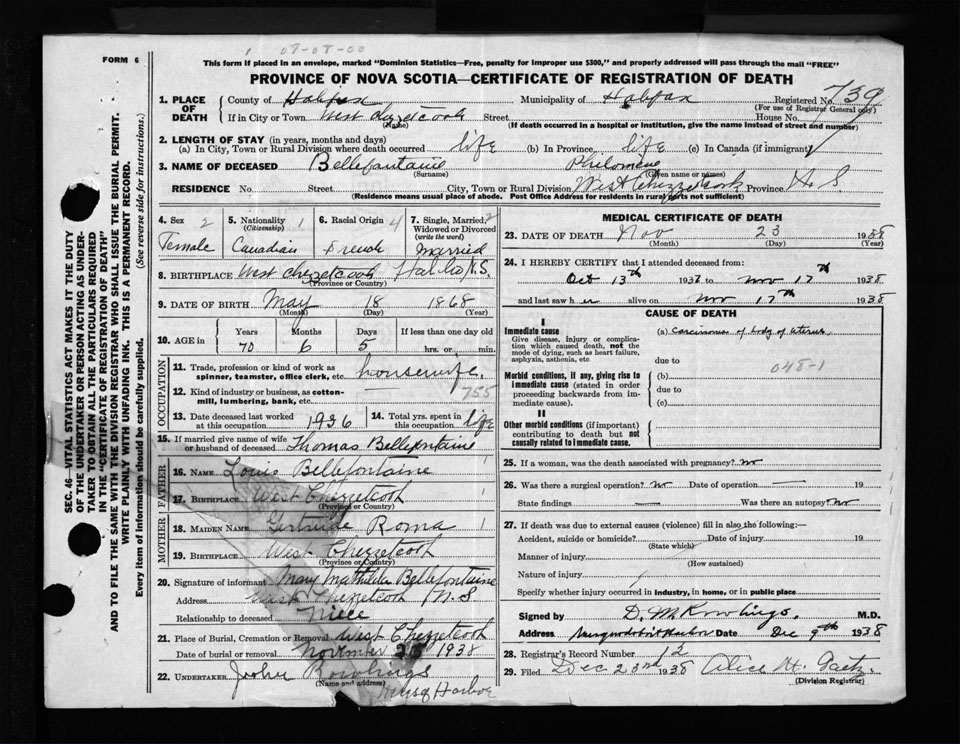 1 07-08-00
FORM 6
This form if placed in an envelope, marked "Dominion Statistics—Free, penalty for improper use $300," and properly addressed will pass through the mail "FREE"
PROVINCE OF NOVA SCOTIA—CERTIFICATE OF REGISTRATION OF DEATH
SEC. 46—VITAL STATISTICS ACT MAKES IT THE DUTY
OF THE UNDERTAKER OR PERSON ACTING AS UNDER-
TAKER TO OBTAIN ALL THE PARTICULARS REQUIRED
IN THE "CERTIFICATE OF REGISTRATION OF DEATH"
AND TO FILE THE SAME WITH THE DIVISION REGISTRAR WHO SHALL ISSUE THE BURIAL PERMIT.
WRITE PLAINLY WITH UNFADING INK. THIS IS A PERMANENT RECORD.
Every item of information should be carefully supplied. (See reverse side for instructions.)
1. PLACE OF DEATH County of Halifax Municipality of Halifax Registered No. 739
(For use of Registrar General only)
If in City or Town West Chezzetcook Street House No.
(Name) (If death occurred in a hospital or institution, give the name instead of street and number)
2. LENGTH OF STAY (in years, months and days)
(a) In City, Town or Rural Division where death occurred life (b) In Province life (c) In Canada (if immigrant)
3. NAME OF DECEASED Bellefontaine Philomene
(Surname) (Given name or names)
RESIDENCE No. Street City, Town or Rural Division West Chezzetcook Province N S
(Residence means usual place of abode. Post Office Address for residents in rural parts not sufficient)
4. Sex 2 Female
5. Nationality 1 (Citizenship) Canadian
6. Racial Origin 4 French
7. Single, Married, 2 Widowed or Divorced (write the word) Married
8. BIRTHPLACE West Chezzetcook Halifax N.S.
(Province or Country)
9. DATE OF BIRTH May 18 1868
(Month) (Day) (Year)
10. AGE in Years Months Days If less than one day old
70 6 5 hrs. or min.
OCCUPATION
11. Trade, profession or kind of work as spinner, teamster, office clerk, etc. housewife.
12. Kind of industry or business, as cotton-mill, lumbering, bank, etc. 755
13. Date deceased last worked at this occupation 1936
14. Total yrs. spent in this occupation life
15. If married give name of wife or husband of deceased Thomas Bellefontaine
FATHER
16. NAME Louis Bellefontaine
17. BIRTHPLACE West Chezzetcook
(Province or Country)
MOTHER
18. MAIDEN NAME Gertrude Roma
19. BIRTHPLACE West Chezzetcook
(Province or Country)
20. Signature of informant Mary Mathilda Bellefontaine
Address West Chezzetcook N.S
Relationship to deceased Niece
21. Place of Burial, Cremation or Removal West Chezzetcook
Date of burial or removal November 25 1938
22. UNDERTAKER Rowlings
(Name and address) Harbor
MEDICAL CERTIFICATE OF DEATH
23. DATE OF DEATH Nov 23 1938
(Month) (Day) (Year)
24. I HEREBY CERTIFY that I attended deceased from:
Oct 13th 1938 to Nov 17th 1938
and last saw her alive on Nov 17th 1938
CAUSE OF DEATH
I
Immediate cause (a) Carcinoma of body of uterus
Give disease, injury or complication which caused death, not the mode of dying, such as heart failure, asphyxia, asthenia, etc.
due to
048-1
Morbid conditions, if any, giving rise to immediate cause (stated in order proceeding backwards from immediate cause).
(b)
due to
(c)
II
Other morbid conditions (if important) contributing to death but not causally related to immediate cause.
25. If a woman, was the death associated with pregnancy? no
26. Was there a surgical operation? no Date of operation — 19
State findings — Was there an autopsy? no
27. If death was due to external causes (violence) fill in also the following:—
Accident, suicide or homicide? Date of injury 19
(State which)
Manner of injury
(How sustained)
Nature of injury
Specify whether injury occurred in industry, in home, or in public place
Signed by D. M Rowlings, M.D.
Address Musquodoboit Harbor Date Dec 9th 1938
28. Registrar's Record Number 12
29. Filed Dec 23rd 1938 Alice H. Gaetz
(Division Registrar)